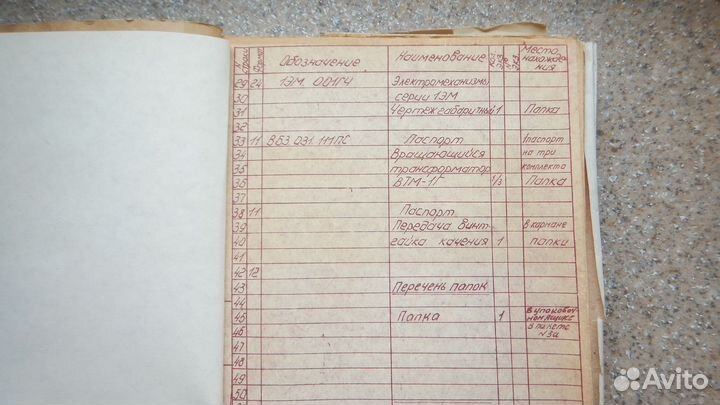 N строки Формат Обозначение Наименование Кол. экз. № экз. Место нахожде- ния
29 24 1ЭМ. 001ГЧ Электромеханизмы
30 серии 1ЭМ
31 Чертеж габаритный 1 Папка
32
33 11 ВБ3. 031. 111ПС Паспорт 1 паспорт
34 Вращающийся на три
35 трансформатор комплекта
36 ВТМ-1Г 1/3 Папка
37
38 11 Паспорт
39 Передача винт- в кармане
40 гайка качения 1 папки
41
42 12
43 Перечень папок
44
45 Папка 1 В упаковоч- ном ящике
46 в пакете
47 N3а
48
49
50
Avito